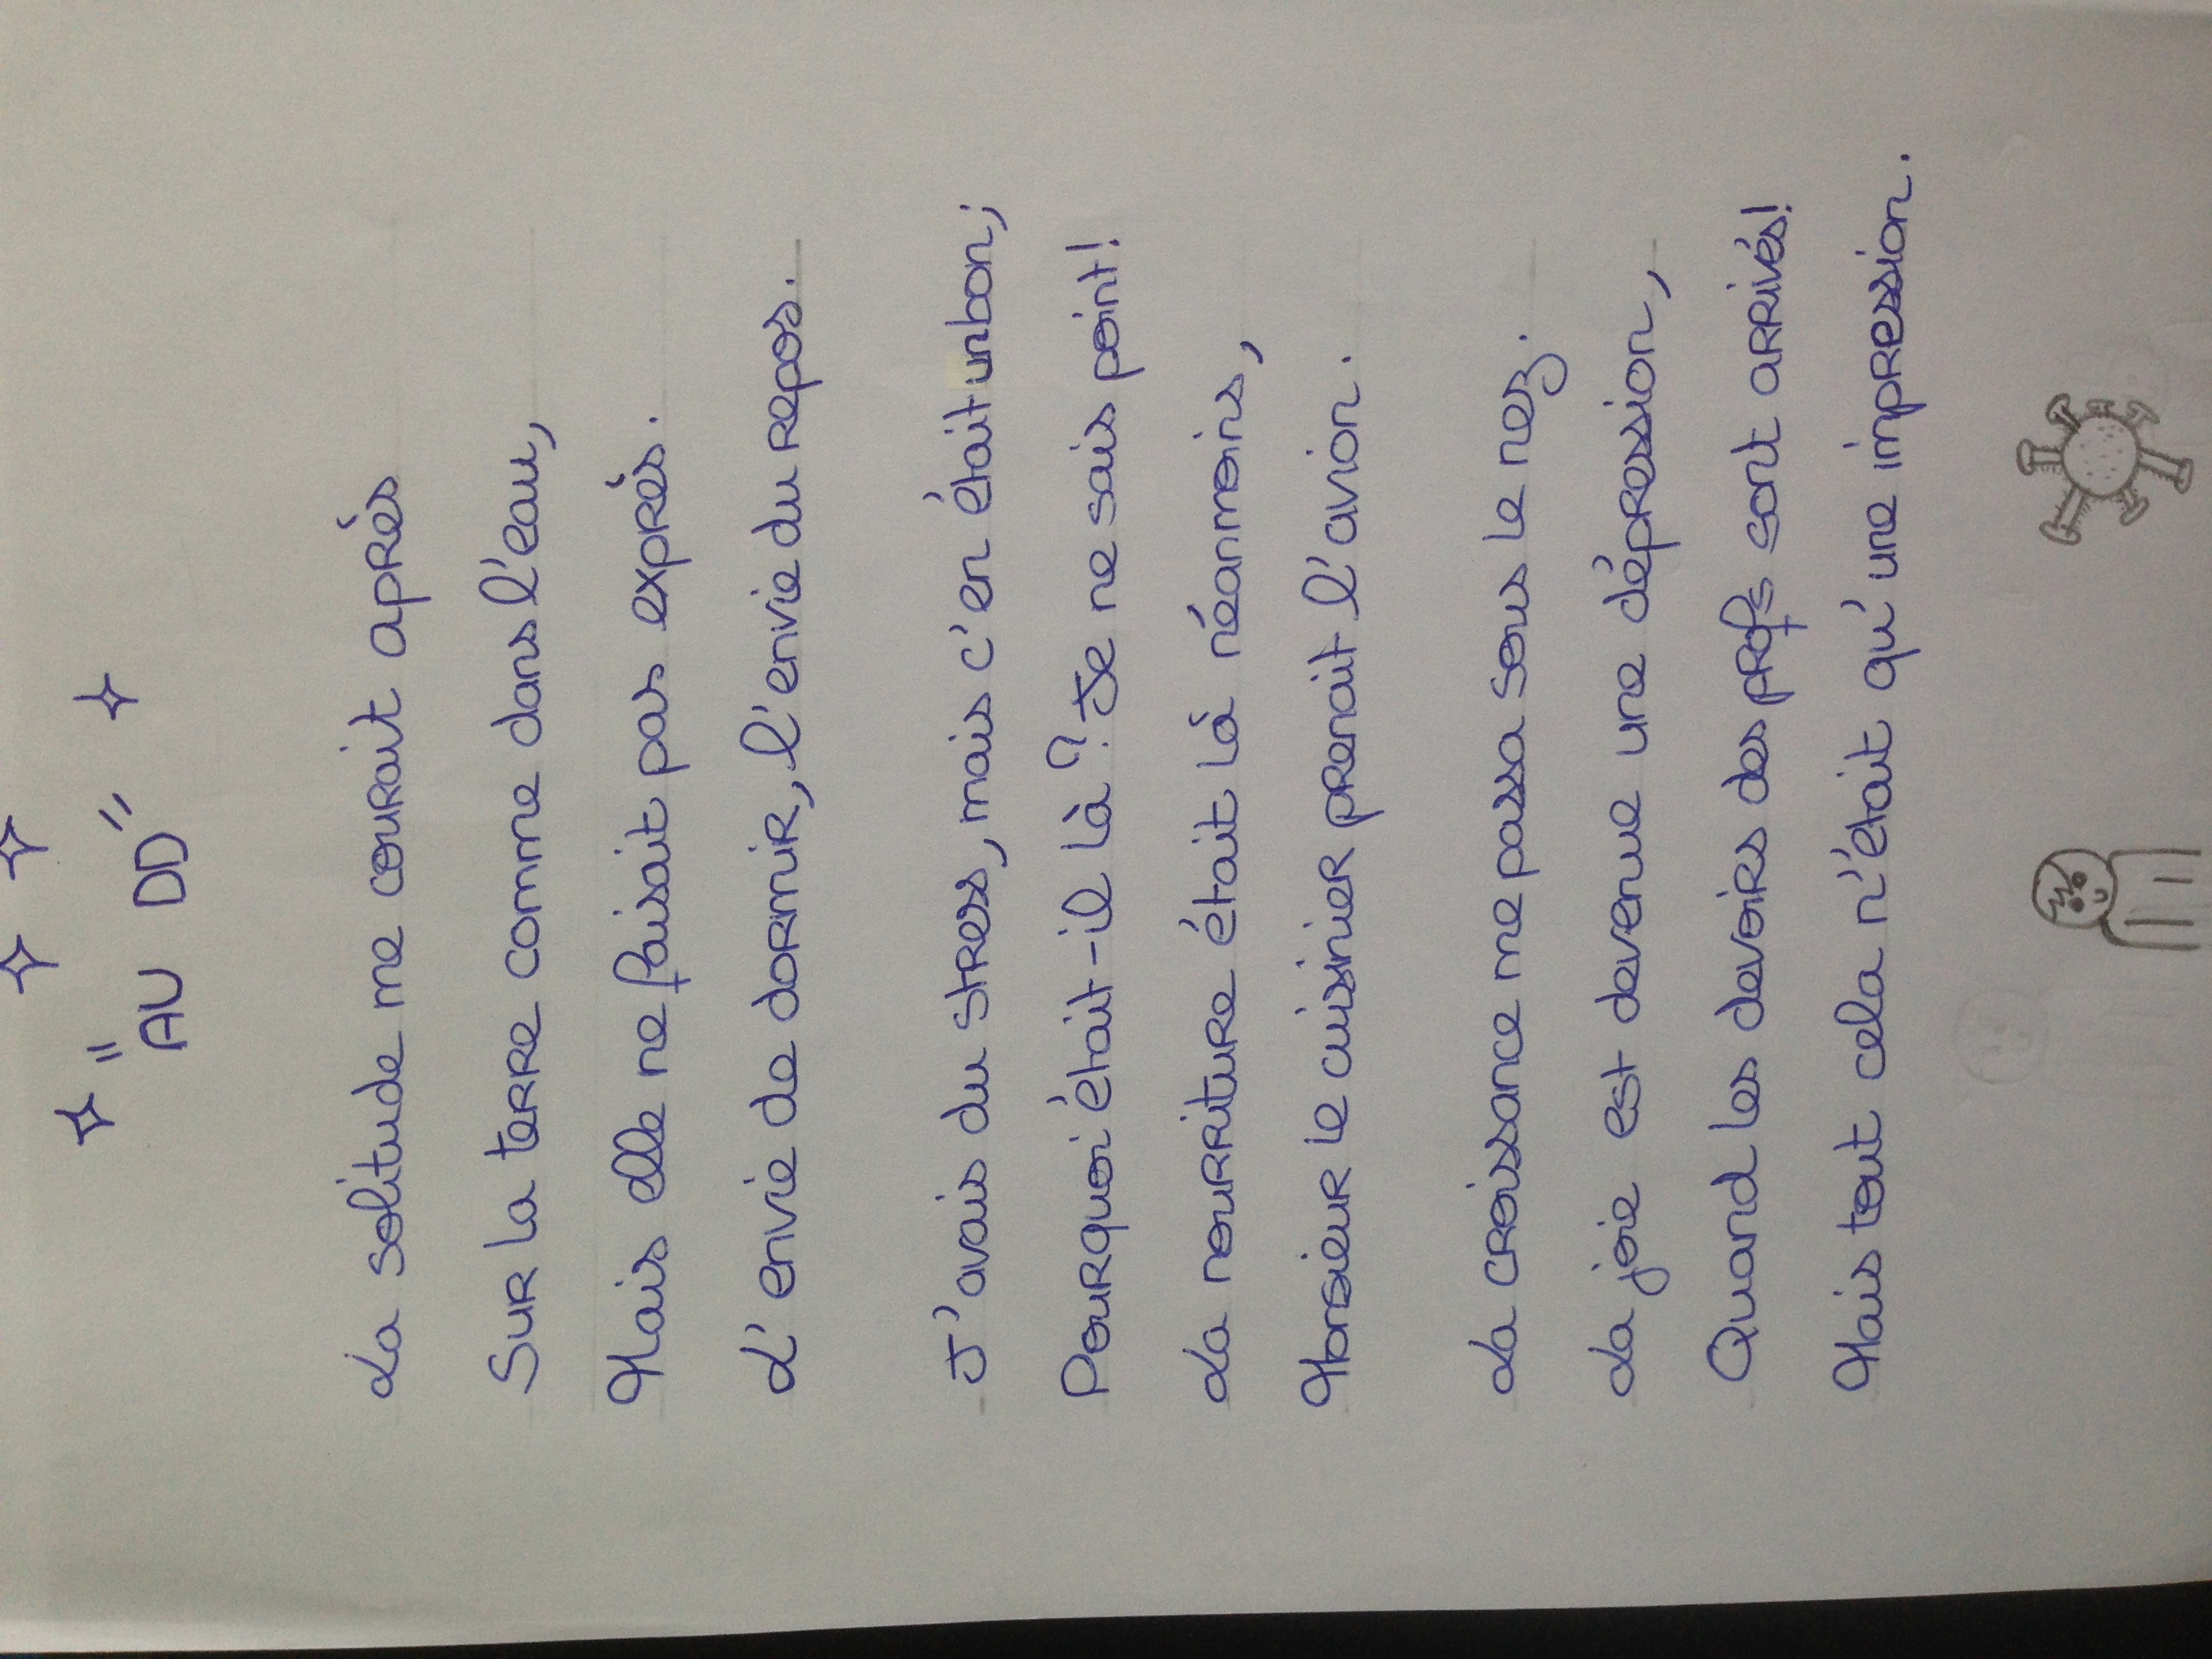 "AU DD"
La solitude me courait après
Sur la terre comme dans l'eau,
Mais elle ne faisait pas exprès.
L'envie de dormir, l'envie du repos.
J'avais du stress, mais c'en était un bon;
Pourquoi était-il là? Je ne sais point!
La nourriture était là néanmoins,
Monsieur le cuisinier prenait l'avion.
La croissance me passa sous le nez.
La joie est devenue une dépression,
Quand les devoirs des profs sont arrivés!
Mais tout cela n'était qu'une impression.